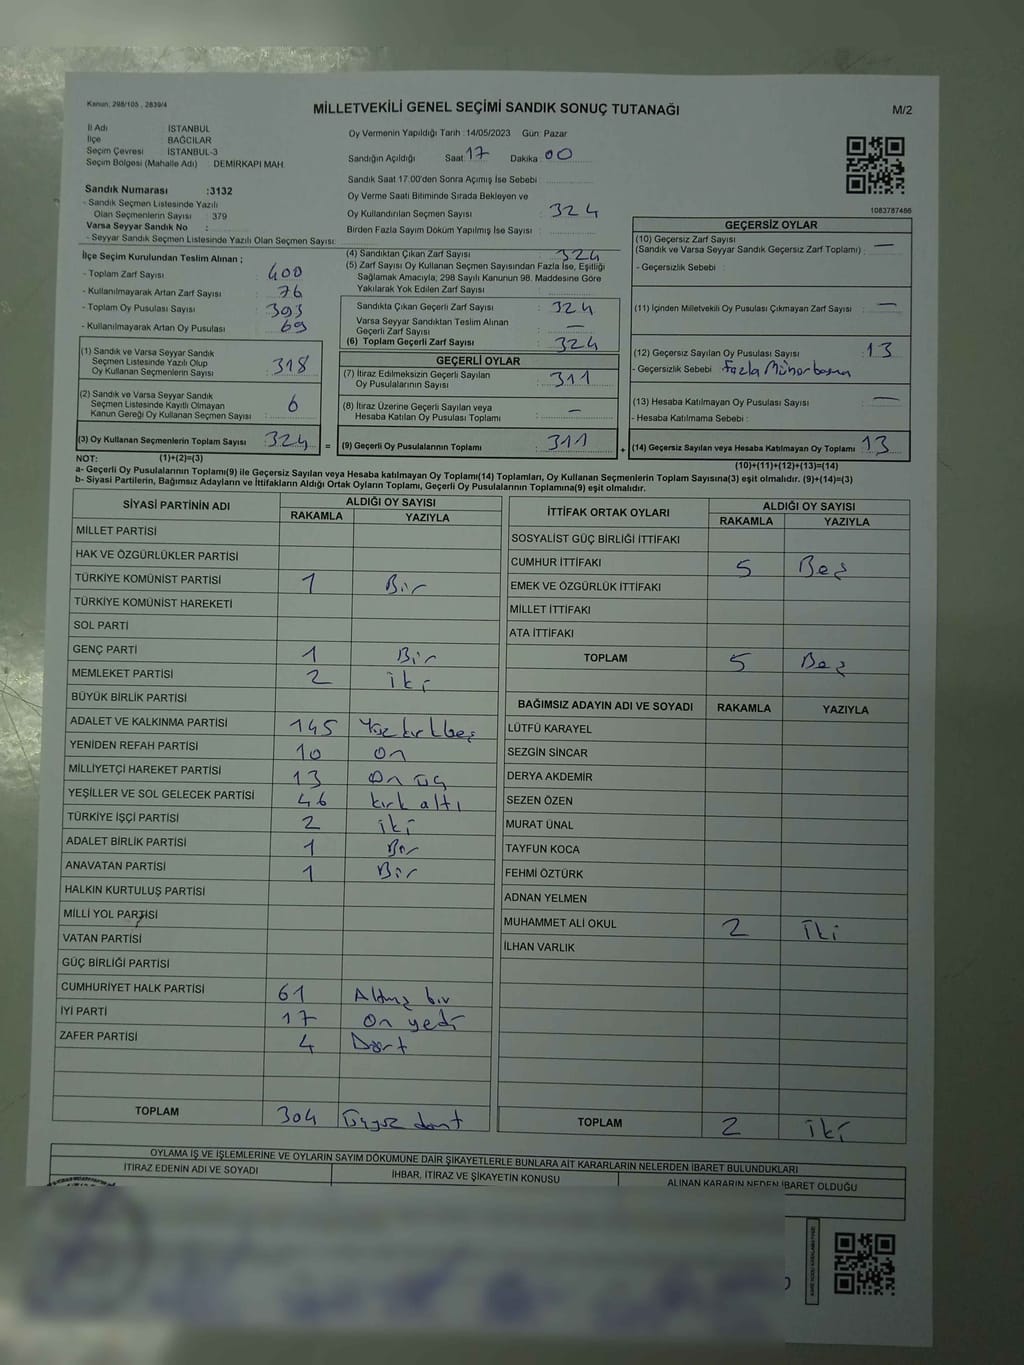 Kanun; 298/105 , 2839/4
MİLLETVEKİLİ GENEL SEÇİMİ SANDIK SONUÇ TUTANAĞI
M/2
İl Adı : İSTANBUL
İlçe : BAĞCILAR
Seçim Çevresi : İSTANBUL-3
Seçim Bölgesi (Mahalle Adı) : DEMİRKAPI MAH.
Oy Vermenin Yapıldığı Tarih : 14/05/2023 Gün: Pazar
Sandığın Açıldığı Saat 17 Dakika 00
Sandık Saat 17.00'den Sonra Açımış İse Sebebi :
Oy Verme Saati Bitiminde Sırada Bekleyen ve
Oy Kullandırılan Seçmen Sayısı : 324
Birden Fazla Sayım Döküm Yapılmış İse Sayısı :
1083787466
Sandık Numarası :3132
- Sandık Seçmen Listesinde Yazılı
Olan Seçmenlerin Sayısı : 379
Varsa Seyyar Sandık No :
- Seyyar Sandık Seçmen Listesinde Yazılı Olan Seçmen Sayısı:
İlçe Seçim Kurulundan Teslim Alınan ;
- Toplam Zarf Sayısı : 400
- Kullanılmayarak Artan Zarf Sayısı : 76
- Toplam Oy Pusulası Sayısı : 393
- Kullanılmayarak Artan Oy Pusulası : 69
(1) Sandık ve Varsa Seyyar Sandık
Seçmen Listesinde Yazılı Olup
Oy Kullanan Seçmenlerin Sayısı : 318
(2) Sandık ve Varsa Seyyar Sandık
Seçmen Listesinde Kayıtlı Olmayan
Kanun Gereği Oy Kullanan Seçmen Sayısı : 6
(3) Oy Kullanan Seçmenlerin Toplam Sayısı : 324
(4) Sandıktan Çıkan Zarf Sayısı : 324
(5) Zarf Sayısı Oy Kullanan Seçmen Sayısından Fazla İse, Eşitliği
Sağlamak Amacıyla; 298 Sayılı Kanunun 98. Maddesine Göre
Yakılarak Yok Edilen Zarf Sayısı :
Sandıkta Çıkan Geçerli Zarf Sayısı : 324
Varsa Seyyar Sandıktan Teslim Alınan
Geçerli Zarf Sayısı : —
(6) Toplam Geçerli Zarf Sayısı : 324
GEÇERLİ OYLAR
(7) İtiraz Edilmeksizin Geçerli Sayılan
Oy Pusulalarının Sayısı : 311
(8) İtiraz Üzerine Geçerli Sayılan veya
Hesaba Katılan Oy Pusulası Toplamı : —
= (9) Geçerli Oy Pusulalarının Toplamı : 311
GEÇERSİZ OYLAR
(10) Geçersiz Zarf Sayısı
(Sandık ve Varsa Seyyar Sandık Geçersiz Zarf Toplamı) : —
- Geçersizlik Sebebi :
(11) İçinden Milletvekili Oy Pusulası Çıkmayan Zarf Sayısı : —
(12) Geçersiz Sayılan Oy Pusulası Sayısı : 13
- Geçersizlik Sebebi : Fazla Mühür basma
(13) Hesaba Katılmayan Oy Pusulası Sayısı : —
- Hesaba Katılmama Sebebi :
+ (14) Geçersiz Sayılan veya Hesaba Katılmayan Oy Toplamı : 13
NOT: (1)+(2)=(3)
(10)+(11)+(12)+(13)=(14)
a- Geçerli Oy Pusulalarının Toplamı(9) ile Geçersiz Sayılan veya Hesaba katılmayan Oy Toplamı(14) Toplamları, Oy Kullanan Seçmenlerin Toplam Sayısına(3) eşit olmalıdır. (9)+(14)=(3)
b- Siyasi Partilerin, Bağımsız Adayların ve İttifakların Aldığı Ortak Oyların Toplamı, Geçerli Oy Pusulalarının Toplamına(9) eşit olmalıdır.
SİYASİ PARTİNİN ADI ALDIĞI OY SAYISI
RAKAMLA YAZIYLA
MİLLET PARTİSİ
HAK VE ÖZGÜRLÜKLER PARTİSİ
TÜRKİYE KOMÜNİST PARTİSİ 1 Bir
TÜRKİYE KOMÜNİST HAREKETİ
SOL PARTİ
GENÇ PARTİ 1 Bir
MEMLEKET PARTİSİ 2 iki
BÜYÜK BİRLİK PARTİSİ
ADALET VE KALKINMA PARTİSİ 145 Yüz kırkbeş
YENİDEN REFAH PARTİSİ 10 On
MİLLİYETÇİ HAREKET PARTİSİ 13 On üç
YEŞİLLER VE SOL GELECEK PARTİSİ 46 kırk altı
TÜRKİYE İŞÇİ PARTİSİ 2 iki
ADALET BİRLİK PARTİSİ 1 Bir
ANAVATAN PARTİSİ 1 Bir
HALKIN KURTULUŞ PARTİSİ
MİLLİ YOL PARTİSİ
VATAN PARTİSİ
GÜÇ BİRLİĞİ PARTİSİ
CUMHURİYET HALK PARTİSİ 61 Altmış bir
İYİ PARTİ 17 On yedi
ZAFER PARTİSİ 4 Dört
TOPLAM 304 Üçyüz dört
İTTİFAK ORTAK OYLARI ALDIĞI OY SAYISI
RAKAMLA YAZIYLA
SOSYALİST GÜÇ BİRLİĞİ İTTİFAKI
CUMHUR İTTİFAKI 5 Beş
EMEK VE ÖZGÜRLÜK İTTİFAKI
MİLLET İTTİFAKI
ATA İTTİFAKI
TOPLAM 5 Beş
BAĞIMSIZ ADAYIN ADI VE SOYADI RAKAMLA YAZIYLA
LÜTFÜ KARAYEL
SEZGİN SİNCAR
DERYA AKDEMİR
SEZEN ÖZEN
MURAT ÜNAL
TAYFUN KOCA
FEHMİ ÖZTÜRK
ADNAN YELMEN
MUHAMMET ALİ OKUL 2 İki
İLHAN VARLIK
TOPLAM 2 iki
OYLAMA İŞ VE İŞLEMLERİNE VE OYLARIN SAYIM DÖKÜMÜNE DAİR ŞİKAYETLERLE BUNLARA AİT KARARLARIN NELERDEN İBARET BULUNDUKLARI
İTİRAZ EDENİN ADI VE SOYADI İHBAR, İTİRAZ VE ŞİKAYETİN KONUSU ALINAN KARARIN NEDEN İBARET OLDUĞU